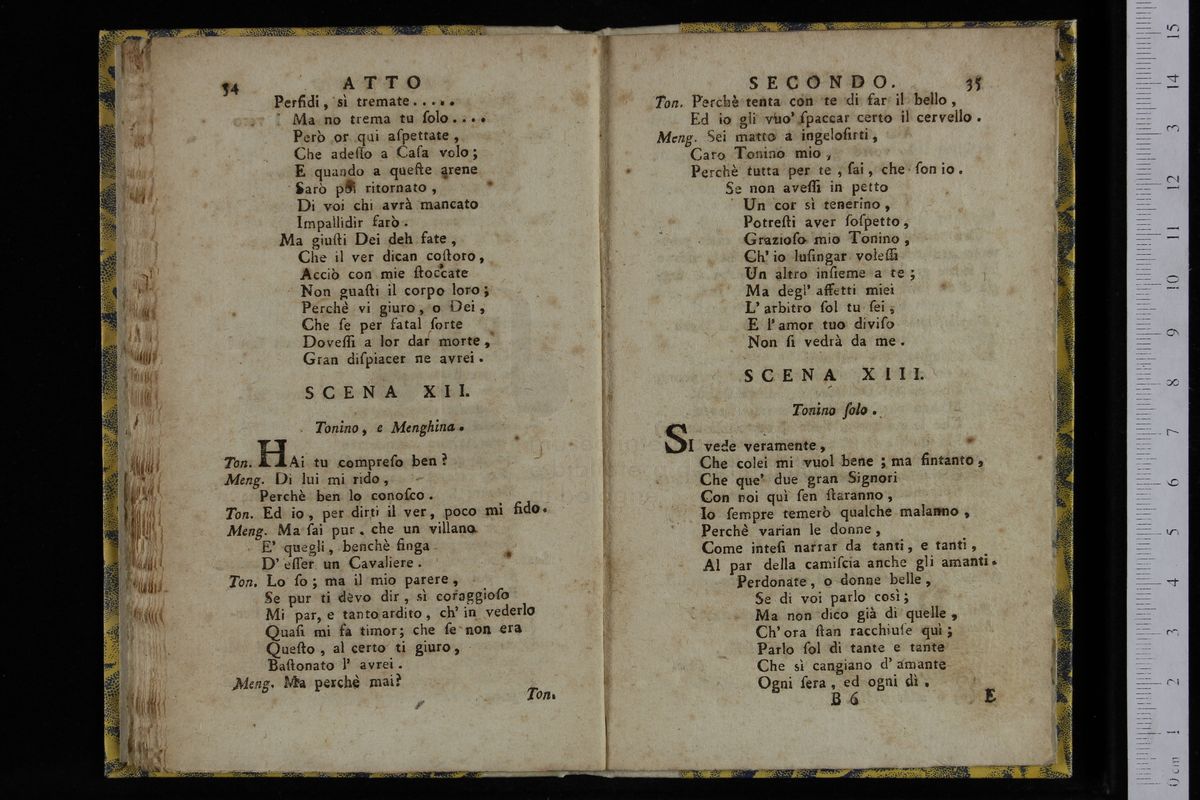 34
ATTO
Perfidi, sì tremate.....
Ma no trema tu ſolo....
Però or qui aſpettate,
Che adeſſo a Caſa volo;
E quando a queſte arene
Sarò poi ritornato,
Di voi chi avrà mancato
Impallidir farò.
Ma giuſti Dei deh fate,
Che il ver dican coſtoro,
Acciò con mie ſtoccate
Non guaſti il corpo loro;
Perchè vi giuro, o Dei,
Che ſe per fatal ſorte
Doveſſi a lor dar morte,
Gran diſpiacer ne avrei.
SCENA XII.
Tonino, e Menghina.
Ton. HAi tu compreſo ben?
Meng. Di lui mi rido,
Perchè ben lo conoſco.
Ton. Ed io, per dirti il ver, poco mi fido.
Meng. Ma ſai pur, che un villano
E' quegli, benchè finga
D'eſſer un Cavaliere.
Ton. Lo ſo; ma il mio parere,
Se pur ti devo dir, sì coraggioſo
Mi par, e tanto ardito, ch'in vederlo
Quaſi mi fa timor; che ſe non era
Queſto, al certo ti giuro,
Baſtonato l'avrei.
Meng. Ma perchè mai?
Ton.
SECONDO.
35
Ton. Perchè tenta con te di far il bello,
Ed io gli vuo' ſpaccar certo il cervello.
Meng. Sei matto a ingeloſirti,
Caro Tonino mio,
Perchè tutta per te, ſai, che ſon io.
Se non aveſſi in petto
Un cor sì tenerino,
Potreſti aver ſoſpetto,
Grazioſo mio Tonino,
Ch'io luſingar voleſſi
Un altro inſieme a te;
Ma degl' affetti miei
L'arbitro ſol tu ſei,
E l'amor tuo diviſo
Non ſi vedrà da me.
SCENA XIII.
Tonino ſolo.
SI vede veramente,
Che colei mi vuol bene; ma fintanto,
Che que' due gran Signori
Con noi quì ſen ſtaranno,
Io ſempre temerò qualche malanno,
Perchè varian le donne,
Come inteſi narrar da tanti, e tanti,
Al par della camiſcia anche gli amanti.
Perdonate, o donne belle,
Se di voi parlo così;
Ma non dico già di quelle,
Ch'ora ſtan racchiuſe quì;
Parlo ſol di tante e tante
Che sì cangiano d'amante
Ogni ſera, ed ogni dì.
B 6
E
0 cm 1 2 3 4 5 6 7 8 9 10 11 12 13 14 15